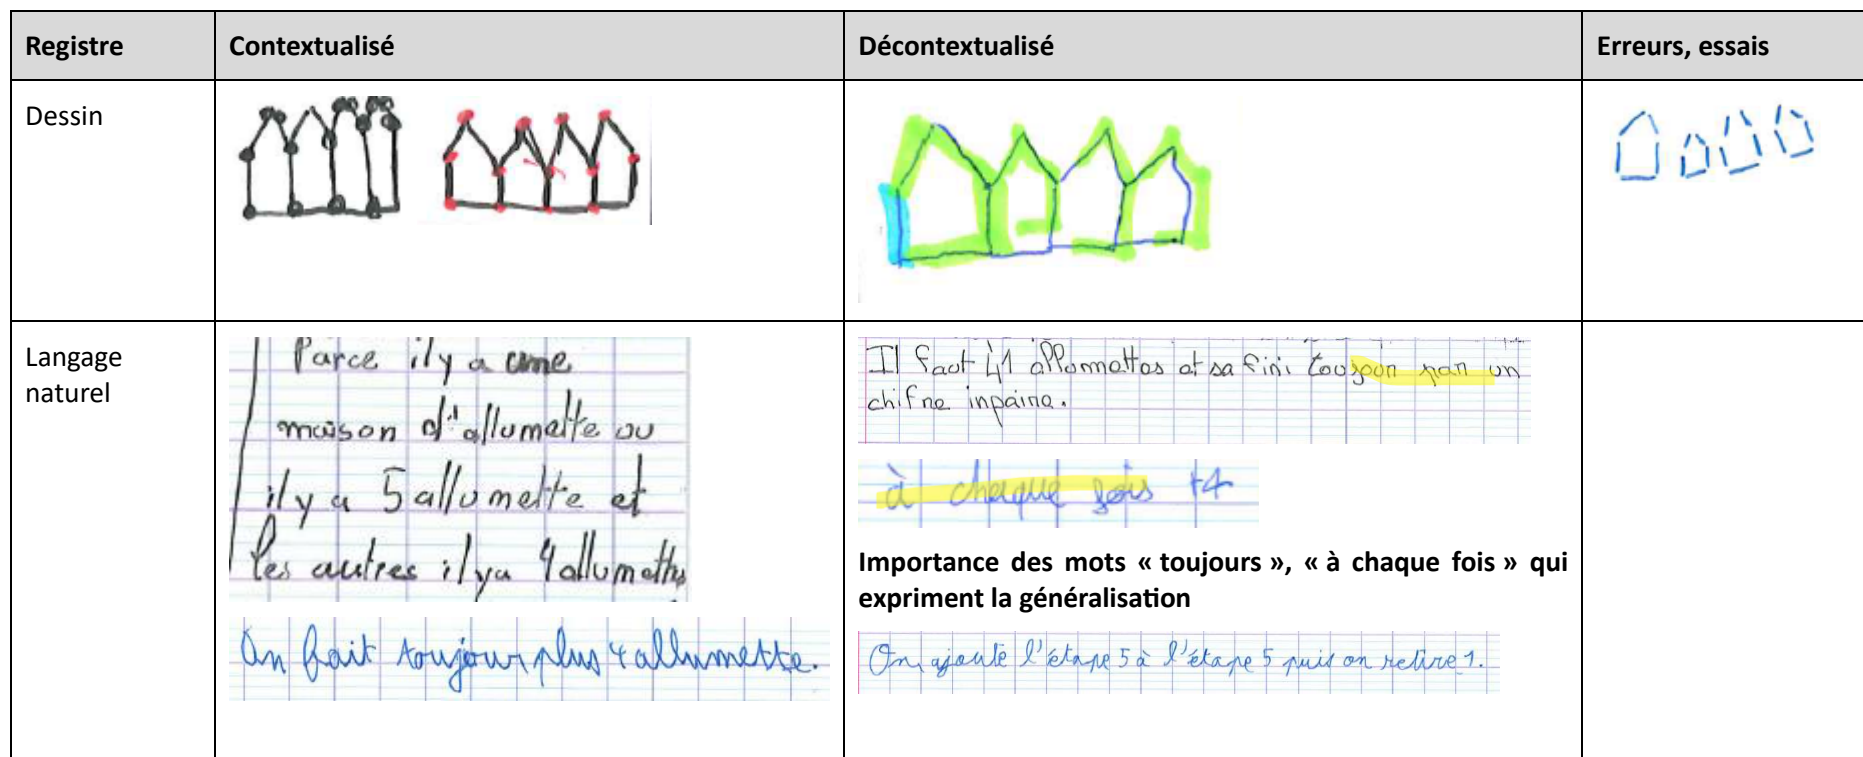 Registre
Contextualisé
Décontextualisé
Erreurs, essais
Dessin
Langage
naturel
Parce il y a une
maison d'allumette ou
il y a 5 allumette et
les autres il ya 4 allumettes
On fait toujour plus 4 allumette.
Il faut 41 allumettes et sa fini toujour par un
chifre inpaire.
à chaque fois +4
Importance des mots « toujours », « à chaque fois » qui
expriment la généralisation
On ajoute l'étape 5 à l'étape 5 puis on retire 1.